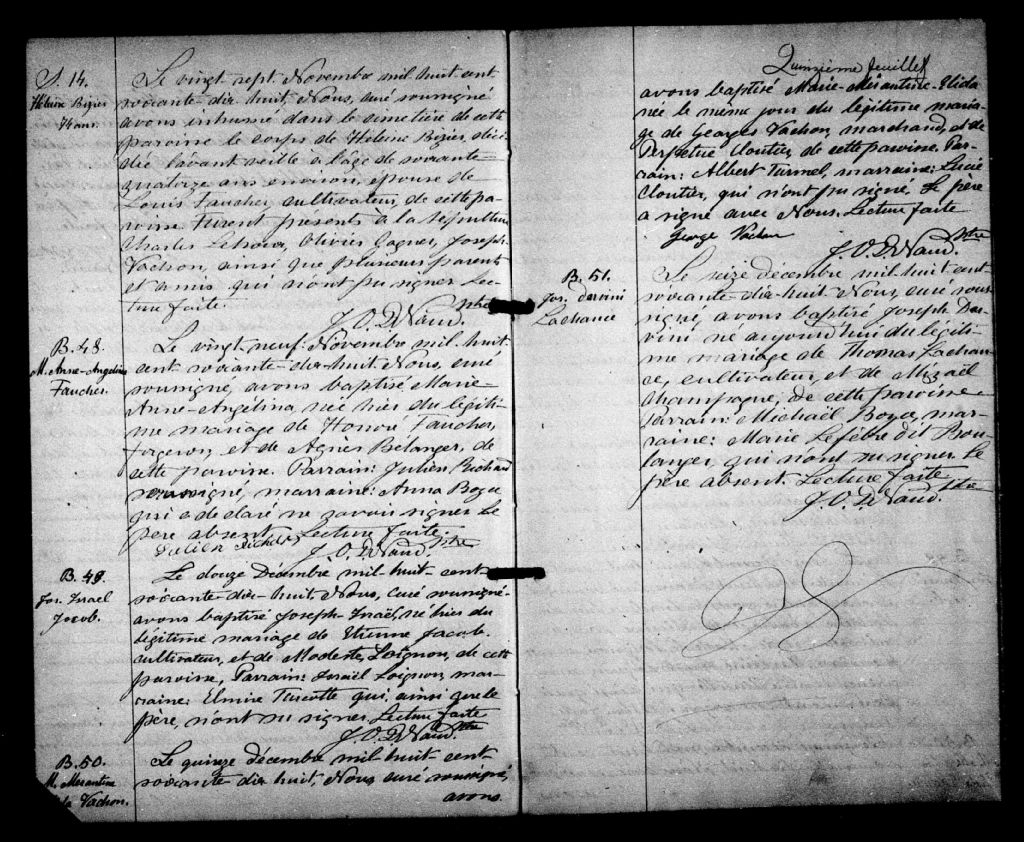 S. 14.
Hélène Bizier
74 ans.
Le vingt sept Novembre mil huit cent
soixante-dix-huit, Nous, curé soussigné
avons inhumé dans le cimetière de cette
paroisse le corps de Hélène Bizier, décé-
dée l'avant veille à l'âge de soixante-
quatorze ans environ, épouse de
Louis Faucher, cultivateur, de cette pa-
roisse. Furent présents à la sépulture
Charles Olivier Gagner, Joseph
Vachon, ainsi que plusieurs parents
et amis qui n'ont pu signer Lec-
ture faite.
J. O. D. Naud. Ptre
B. 48.
M. Anne-Angelina
Faucher.
Le vingt neuf Novembre mil huit
cent soixante-dix-huit, Nous, curé
soussigné, avons baptisé Marie-
Anne-Angélina, née hier du légiti-
me mariage de Honoré Faucher,
forgeron, et de Agnès Bélanger, de
cette paroisse. Parrain: Julien Richard
soussigné, marraine: Anna
qui a déclaré ne savoir signer Le
père absent. Lecture faite.
Julien
J. O. D. Naud. Ptre
B. 49.
Jos. Israel
Jacob.
Le douze Décembre mil huit cent
soixante-dix-huit, Nous, curé soussigné
avons baptisé Joseph-Israël, né hier du
légitime mariage de Etienne Jacob
cultivateur, et de Modeste Loignon, de cette
paroisse, Parrain: Israël Loignon, mar-
raine: Elmire Turcotte qui, ainsi que le
père, n'ont su signer. Lecture faite
J. O. D. Naud. Ptre
B. 50.
M. Merantine
Vachon.
Le quinze décembre mil huit cent
soixante-dix-huit, Nous, curé soussigné,
avons
Quinzième feuillet
avons baptisé Marie-Mérantine-Elida
née le même jour du légitime maria-
ge de Georges Vachon, marchand, et de
Perpétue Cloutier, de cette paroisse. Par-
rain: Albert Turmel, marraine: Lucie
Cloutier, qui n'ont pu signé. Le père
a signé avec Nous. Lecture faite
George Vachon
J. O. D. Naud. Ptre
B. 51.
Jos. dervini
Lachance
Le seize décembre mil huit cent
soixante-dix-huit, Nous, curé sous-
signé, avons baptisé Joseph Der-
vini né aujourd'hui du légiti-
me mariage de Thomas Lachan-
ce, cultivateur, et de Mizaël
Champagne, de cette paroisse.
Parrain: Michaël mar-
raine: Marie Lefebre dit Bou-
langer, qui n'ont su signer Le
père absent. Lecture faite
J. O. D. Naud. Ptre